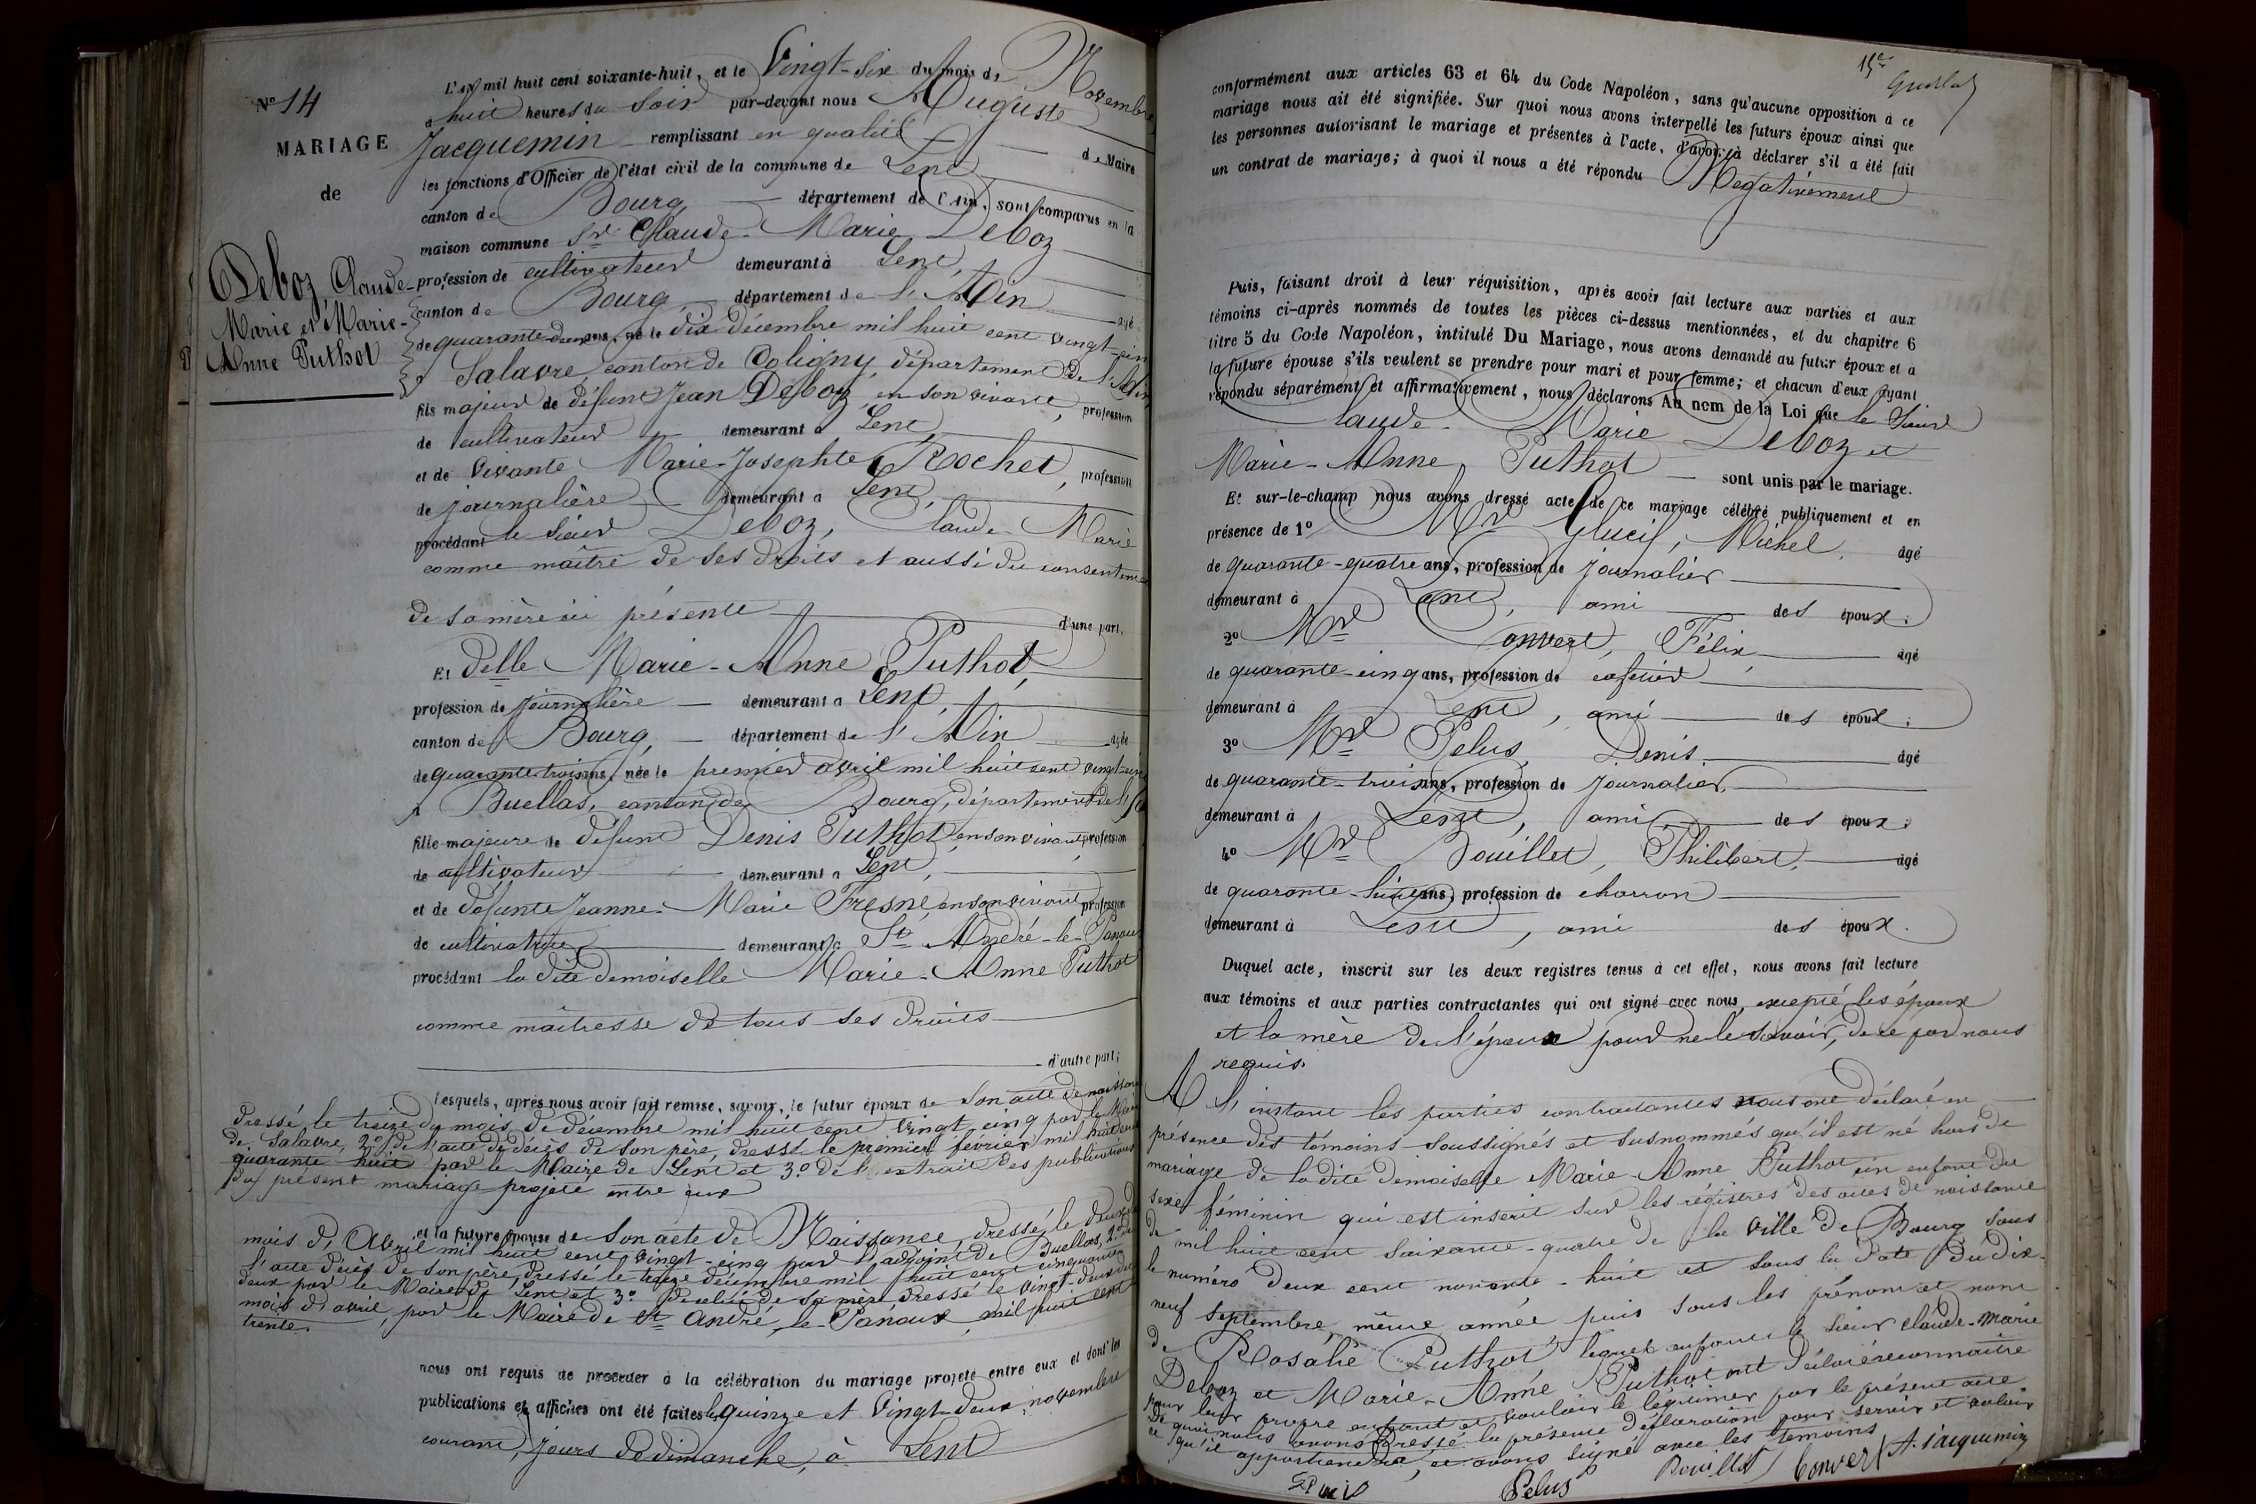 N° 14
MARIAGE
de
Deboz, Claude-
Marie et Marie-
Anne Puthot
L'an mil huit cent soixante-huit, et le Vingt-six du mois de Novembre
à huit heures du soir par-devant nous Auguste
Jacquemin remplissant en qualité de Maire
les fonctions d'Officier de l'état civil de la commune de Lent
canton de Bourg département de l'Ain, sont comparus en la
maison commune Sr Claude-Marie Deboz
profession de cultivateur demeurant à Lent,
canton de Bourg, département de l'Ain âgé
de quarante-deux ans, né le dix décembre mil huit cent vingt-cinq
à Salavre, canton de Coligny, département de l'Ain,
fils majeur de défunt Jean Deboz, en son vivant, profession
de cultivateur demeurant à Lent,
et de vivante Marie-Josephte Rochet, profession
de journalière demeurant à Lent,
procédant le sieur Deboz, Claude-Marie
comme maître de ses droits et aussi du consentement
de sa mère ici présente d'une part,
Et Delle Marie-Anne Puthot,
profession de journalière demeurant à Lent,
canton de Bourg, département de l'Ain âgée
de quarante-trois ans, née le premier avril mil huit cent vingt-cinq
à Buellas, canton de Bourg, département de l'Ain
fille majeure de défunt Denis Puthot, en son vivant, profession
de cultivateur demeurant à Lent,
et de défunte Jeanne-Marie Fresne, en son vivant, profession
de cultivatrice demeurant à St André-le-Panoux
procédant la dite demoiselle Marie-Anne Puthot
comme maîtresse de tous ses droits
d'autre part;
Lesquels, après nous avoir fait remise, savoir, le futur époux de son acte de naissance
dressé le treize du mois de décembre mil huit cent vingt cinq par le Maire
de Salavre, 2° de l'acte de décès de son père, dressé le premier février mil huit cent
quarante huit par le Maire de Lent et 3° de l'extrait des publications
du présent mariage projeté entre eux
et la future épouse de son acte de Naissance, dressé le deux du
mois d'Avril mil huit cent vingt-cinq par l'adjoint de Buellas, 2° de
l'acte décès de son père, dressé le treize décembre mil huit cent cinquante
deux par le Maire de Lent et 3° de celui de sa mère dressé le vingt-deux du
mois d'avril, par le Maire de St André-le-Panoux, mil huit cent
trente.
nous ont requis de procéder à la célébration du mariage projeté entre eux et dont les
publications et affiches ont été faites les quinze et vingt-deux novembre
courant, jours de dimanche, à Lent
15e
conformément aux articles 63 et 64 du Code Napoléon, sans qu'aucune opposition à ce
mariage nous ait été signifiée. Sur quoi nous avons interpellé les futurs époux ainsi que
les personnes autorisant le mariage et présentes à l'acte, d'avoir à déclarer s'il a été fait
un contrat de mariage; à quoi il nous a été répondu Négativement
Puis, faisant droit à leur réquisition, après avoir fait lecture aux parties et aux
témoins ci-après nommés de toutes les pièces ci-dessus mentionnées, et du chapitre 6
titre 5 du Code Napoléon, intitulé Du Mariage, nous avons demandé au futur époux et à
la future épouse s'ils veulent se prendre pour mari et pour femme; et chacun d'eux ayant
répondu séparément et affirmativement, nous déclarons Au nom de la Loi que le Sieur
Claude-Marie Deboz et
Marie-Anne Puthot sont unis par le mariage.
Et sur-le-champ nous avons dressé acte de ce mariage célébré publiquement et en
présence de 1° Mr Glucil, Michel, âgé
de quarante-quatre ans, profession de journalier
demeurant à Lent, ami des époux.
2° Mr Convert, Félix, âgé
de quarante-cinq ans, profession de cafetier
demeurant à Lent, ami des époux;
3° Mr Pelus, Denis, âgé
de quarante-trois ans, profession de journalier,
demeurant à Lent, ami des époux.
4° Mr Bouillet, Philibert, âgé
de quarante-huit ans, profession de charron
demeurant à Lent, ami des époux.
Duquel acte, inscrit sur les deux registres tenus à cet effet, nous avons fait lecture
aux témoins et aux parties contractantes qui ont signé avec nous, excepté les époux
et la mère de l'époux pour ne le savoir, de ce par nous
requis.
A l'instant les parties contractantes nous ont déclaré en
présence des témoins soussignés et susnommés qu'il est né hors de
mariage de la dite demoiselle Marie-Anne Puthot un enfant du
sexe féminin qui est inscrit sur les régistres des actes de naissance
de mil huit cent soixante-quatre de la ville de Bourg sous
le numéro deux cent nonante-huit et sous la date du dix-
neuf septembre, même année puis sous les prénom et nom
de Rosalie Puthot lequel enfant le sieur Claude-Marie
Deboz et Marie-Anne Puthot ont déclaré reconnaître
pour leur propre enfant et vouloir le légitimer par le présent acte
de quoi nous avons dressé la présente déclaration pour servir et valoir
ce qu'il appartiendra, et avons signé avec les témoins
Pelus Bouillet Convert A. Jacquemin